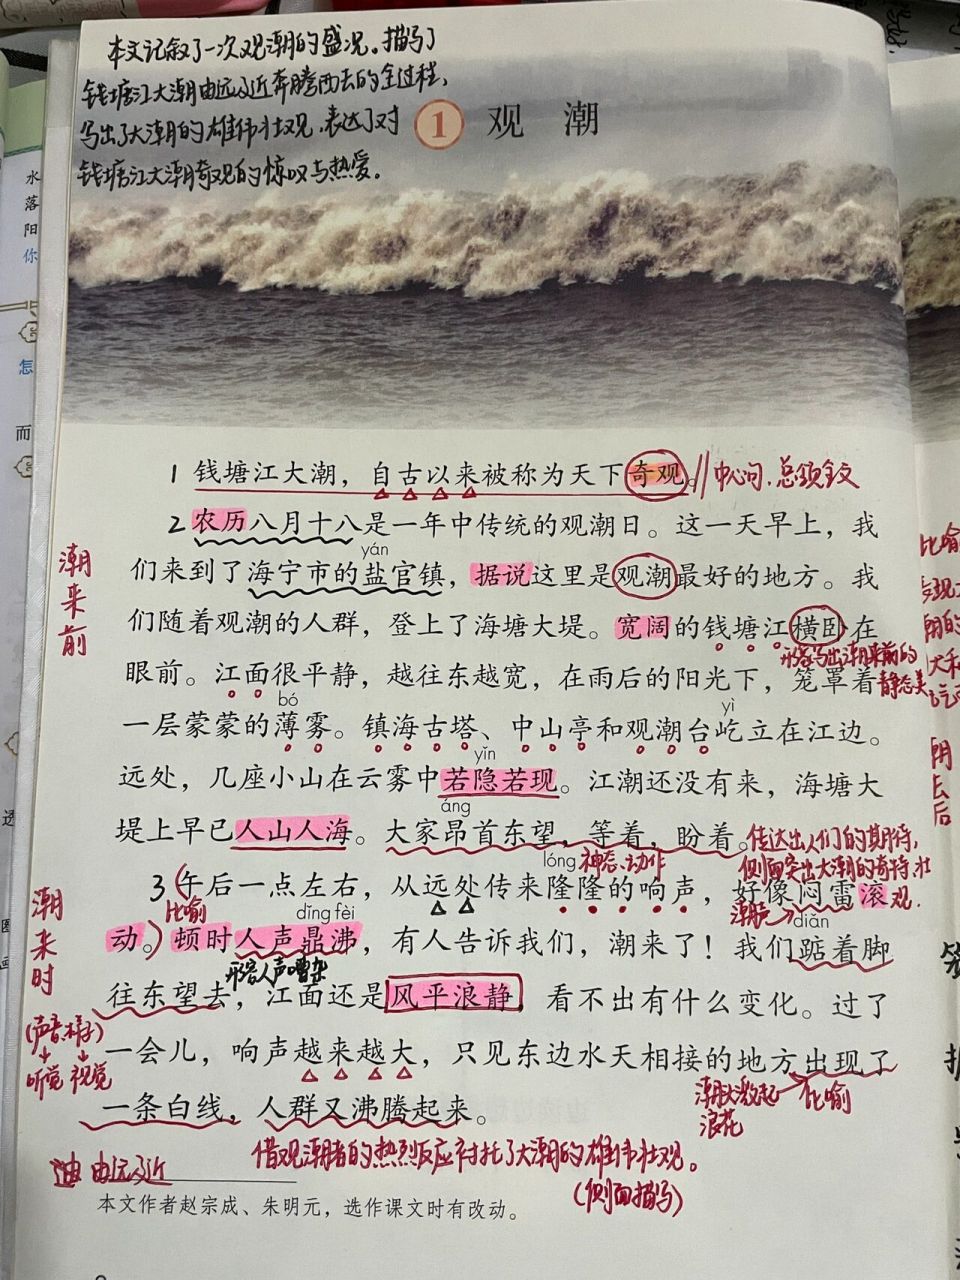 本文记叙了一次观潮的盛况。描写了
钱塘江大潮由远及近奔腾西去的全过程,
写出了大潮的雄伟壮观,表达了对
钱塘江大潮奇观的惊叹与热爱。
1 观 潮
水
落
阳
你
怎
而
透
1 钱塘江大潮，自古以来被称为天下奇观。
中心句,总领全文
2 农历八月十八是一年中传统的观潮日。这一天早上，我
潮来前
yán
们来到了海宁市的盐官镇，据说这里是观潮最好的地方。我
们随着观潮的人群，登上了海塘大堤。宽阔的钱塘江横卧在
形容写出潮来前的
静态美
眼前。江面很平静，越往东越宽，在雨后的阳光下，笼罩着
bó yì
一层蒙蒙的薄雾。镇海古塔、中山亭和观潮台屹立在江边。
yǐn
远处，几座小山在云雾中若隐若现。江潮还没有来，海塘大
áng
堤上早已人山人海。大家昂首东望，等着，盼着。
传达出人们的期待,
侧面突出大潮的奇特、壮
观.
lóng 神态、动作
3 午后一点左右，从远处传来隆隆的响声，好像闷雷滚
潮来时
比喻 dǐng fèi 潮声 diǎn
动。顿时人声鼎沸，有人告诉我们，潮来了！我们踮着脚
形容人声嘈杂
往东望去，江面还是风平浪静，看不出有什么变化。过了
(声音、样子)
听觉 视觉
一会儿，响声越来越大，只见东边水天相接的地方出现了
潮水激起
浪花
比喻
一条白线，人群又沸腾起来。
借观潮者的热烈反应衬托了大潮的雄伟壮观。
(侧面描写)
由远及近
本文作者赵宗成、朱明元，选作课文时有改动。
比喻